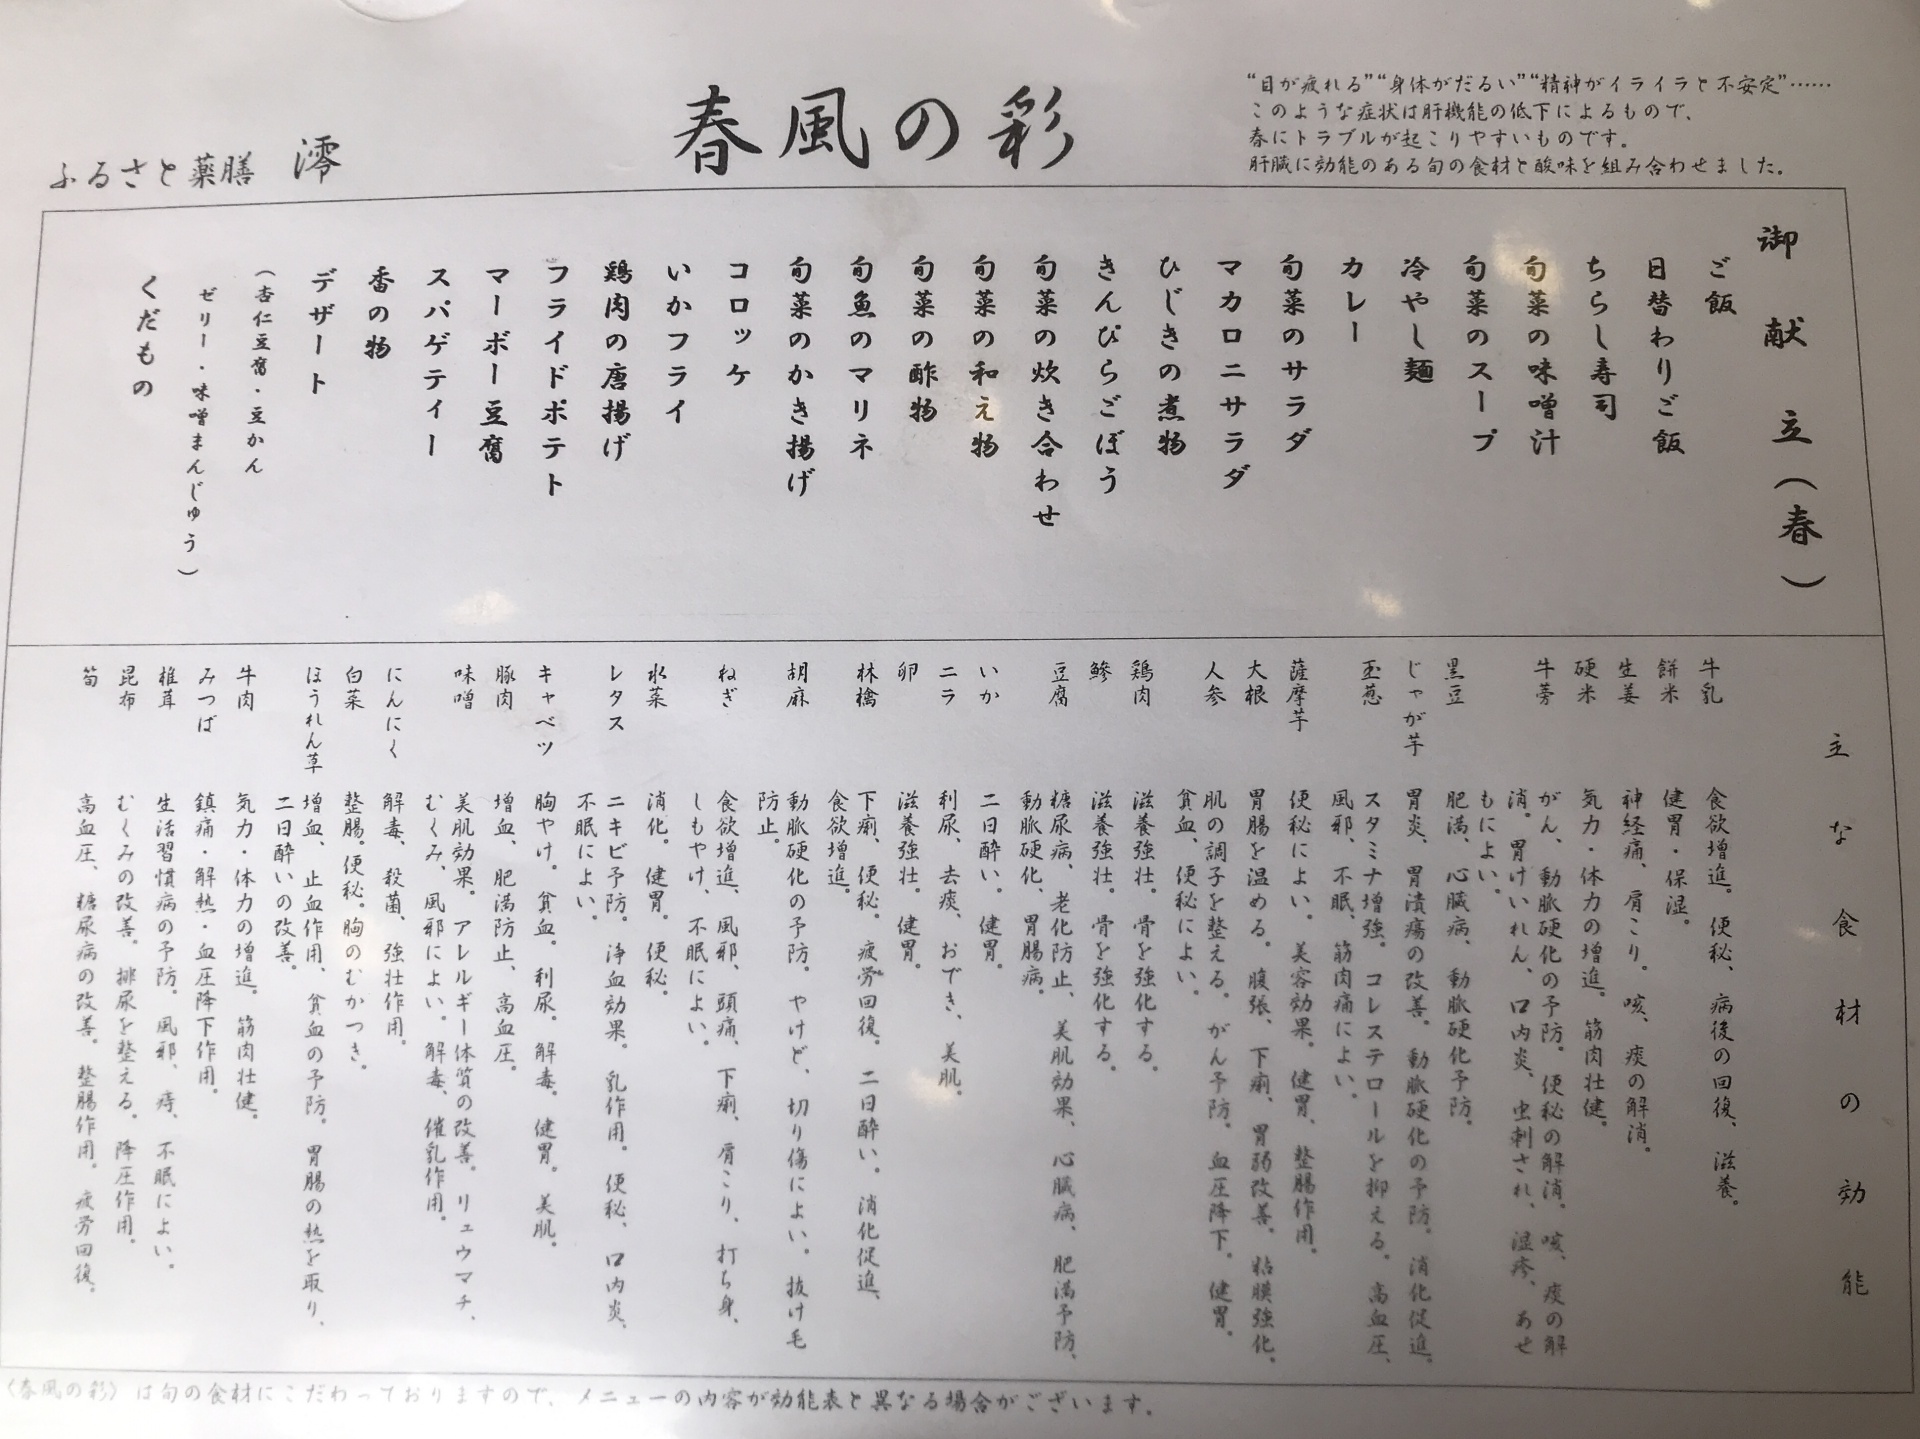 ふるさと薬膳 澪
春風の彩
“目が疲れる”“身体がだるい”“精神がイライラと不安定”……
このような症状は肝機能の低下によるもので、
春にトラブルが起こりやすいものです。
肝臓に効能のある旬の食材と酸味を組み合わせました。
御献立(春)
ご飯
日替わりご飯
ちらし寿司
旬菜の味噌汁
旬菜のスープ
冷やし麺
カレー
旬菜のサラダ
マカロニサラダ
ひじきの煮物
きんぴらごぼう
旬菜の炊き合わせ
旬菜の和え物
旬菜の酢物
旬魚のマリネ
旬菜のかき揚げ
コロッケ
いかフライ
鶏肉の唐揚げ
フライドポテト
マーボー豆腐
スパゲティー
香の物
デザート
(杏仁豆腐・豆かん
ゼリー・味噌まんじゅう)
くだもの
主な食材の効能
牛乳 食欲増進。便秘、病後の回復、滋養。
餅米 健胃・保湿。
生姜 神経痛、肩こり。咳、痰の解消。
硬米 気力・体力の増進。筋肉壮健。
牛蒡 がん、動脈硬化の予防。便秘の解消。咳、痰の解
消。胃けいれん、口内炎、虫刺され、湿疹、あせ
もによい。
黒豆 肥満、心臓病、動脈硬化予防。
じゃが芋 胃炎、胃潰瘍の改善。動脈硬化の予防。消化促進。
玉葱 スタミナ増強。コレステロールを抑える。高血圧、
風邪、不眠、筋肉痛によい。
薩摩芋 便秘によい。美容効果。健胃、整腸作用。
大根 胃腸を温める。腹張、下痢、胃弱改善。粘膜強化。
人参 肌の調子を整える。がん予防。血圧降下。健胃。
貧血、便秘によい。
鶏肉 滋養強壮。骨を強化する。
鰺 滋養強壮。骨を強化する。
豆腐 糖尿病、老化防止、美肌効果、心臓病、肥満予防、
動脈硬化、胃腸病。
いか 二日酔い。健胃。
ニラ 利尿、去痰、おでき、美肌。
卵 滋養強壮。健胃。
林檎 下痢、便秘。疲労回復。二日酔い。消化促進、
食欲増進。
胡麻 動脈硬化の予防。やけど、切り傷によい。抜け毛
防止。
ねぎ 食欲増進、風邪、頭痛、下痢、肩こり、打ち身、
しもやけ、不眠によい。
水菜 消化。健胃。便秘。
レタス ニキビ予防。浄血効果。乳作用。便秘、口内炎、
不眠によい。
キャベツ 胸やけ。貧血。利尿。解毒。健胃。美肌。
豚肉 増血、肥満防止、高血圧。
味噌 美肌効果。アレルギー体質の改善。リュウマチ、
むくみ、風邪によい。解毒、催乳作用。
にんにく 解毒、殺菌、強壮作用。
白菜 整腸。便秘。胸のむかつき。
ほうれん草 増血、止血作用、貧血の予防。胃腸の熱を取り、
二日酔いの改善。
牛肉 気力・体力の増進。筋肉壮健。
みつば 鎮痛・解熱・血圧降下作用。
椎茸 生活習慣病の予防。風邪、痔、不眠によい。
昆布 むくみの改善。排尿を整える。降圧作用。
筍 高血圧、糖尿病の改善。整腸作用。疲労回復。
〈春風の彩〉は旬の食材にこだわっておりますので、メニューの内容が効能表と異なる場合がございます。